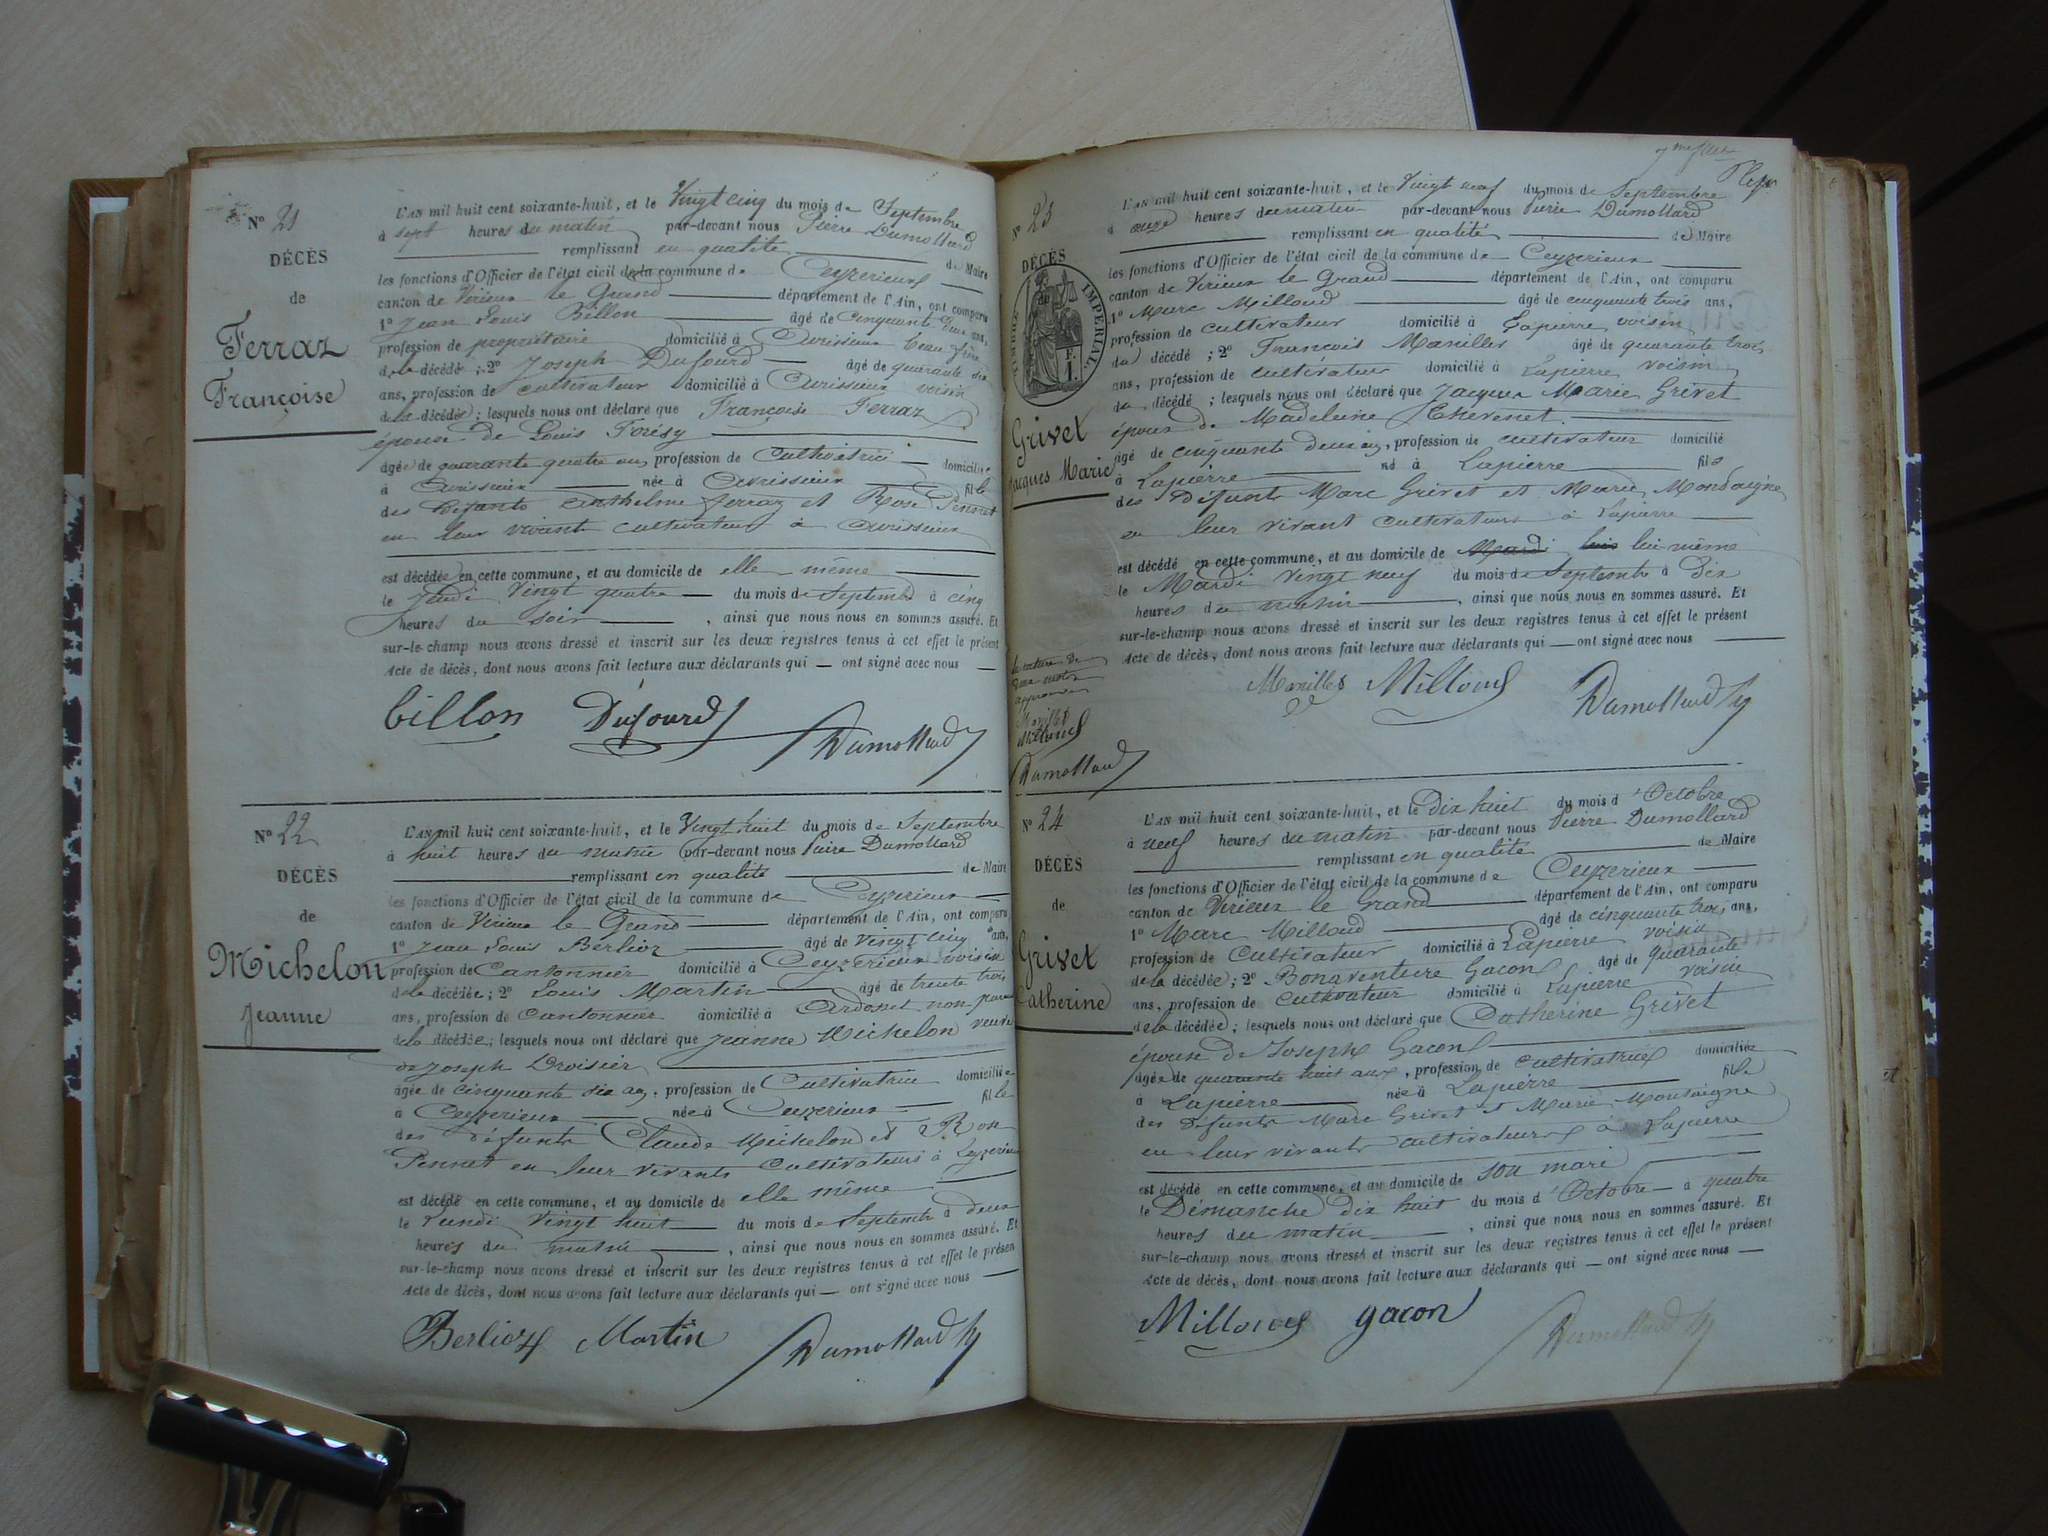 N° 21
DÉCÈS
de
Ferraz
Françoise
L'AN mil huit cent soixante-huit, et le Vingt cinq du mois de Septembre
à sept heures du matin par-devant nous Pierre Dumollard
remplissant en qualité de Maire
les fonctions d'Officier de l'état civil de la commune de Ceyzerieux
canton de Virieux le Grand département de l'Ain, ont comparu
1° Jean Louis Billon âgé de Cinquante deux ans,
profession de propriétaire domicilié à Avrissieux beau frère
de la décédé; 2° Joseph Dufourd âgé de quarante six
ans, profession de cultivateur domicilié à Avrissieux voisin
de la décédée; lesquels nous ont déclaré que Françoise Ferraz
épouse de Louis Forésy
âgée de quarante quatre ans, profession de Cultivatrice domiciliée
à Avrissieux née à Avrissieux fille
des défunts Anthelme Ferraz et Rose Pennet
en leur vivant cultivateurs à Avrissieux
est décédée en cette commune, et au domicile de elle même
le Jeudi Vingt quatre du mois de Septembre à cinq
heures du soir, ainsi que nous nous en sommes assuré. Et
sur-le-champ nous avons dressé et inscrit sur les deux registres tenus à cet effet le présent
Acte de décès, dont nous avons fait lecture aux déclarants qui — ont signé avec nous
billon Dufourd Dumollard
N° 22
DÉCÈS
de
Michelon
Jeanne
L'AN mil huit cent soixante-huit, et le Vingt huit du mois de Septembre
à huit heures du matin par-devant nous Pierre Dumollard
remplissant en qualité de Maire
les fonctions d'Officier de l'état civil de la commune de Ceyzerieux
canton de Virieux le Grand département de l'Ain, ont comparu
1° Jean Louis Berlioz âgé de vingt cinq ans,
profession de Cantonnier domicilié à Ceyzerieux voisin
de la décédée; 2° Louis Martin âgé de trente trois
ans, profession de Cantonnier domicilié à Ardosset non parent
de la décédée; lesquels nous ont déclaré que Jeanne Michelon veuve
de Joseph Droisier
âgée de cinquante six ans, profession de Cultivatrice domiciliée
à Ceyzerieux née à Ceyzerieux fille
des défunts Claude Michelon et Rose
Pennet en leur vivants Cultivateurs à Ceyzerieux
est décédé en cette commune, et au domicile de elle même
le Lundi Vingt huit du mois de Septembre à deux
heures du matin, ainsi que nous nous en sommes assuré. Et
sur-le-champ nous avons dressé et inscrit sur les deux registres tenus à cet effet le présent
Acte de décès, dont nous avons fait lecture aux déclarants qui — ont signé avec nous
Berlioz Martin Dumollard
N° 23
DÉCÈS
de
TIMBRE IMPERIAL
Grivet
Jacques Marie
L'AN mil huit cent soixante-huit, et le Vingt neuf du mois de Septembre
à onze heures du matin par-devant nous Pierre Dumollard
remplissant en qualité de Maire
les fonctions d'Officier de l'état civil de la commune de Ceyzerieux
canton de Virieux le Grand département de l'Ain, ont comparu
1° Marc Milloud âgé de cinquante trois ans,
profession de cultivateur domicilié à Lapierre voisin
du décédé; 2° François Marillet âgé de quarante trois
ans, profession de cultivateur domicilié à Lapierre voisin
du décédé; lesquels nous ont déclaré que Jacques Marie Grivet
époux de Madeleine Thevenet
âgé de cinquante deux ans, profession de cultivateur domicilié
à Lapierre né à Lapierre fils
des défunts Marc Grivet et Marie Montaigne
en leur vivant cultivateurs à Lapierre
est décédé en cette commune, et au domicile de Mardi lui lui-même
le Mardi vingt neuf du mois de Septembre à Dix
heures du matin, ainsi que nous nous en sommes assuré. Et
sur-le-champ nous avons dressé et inscrit sur les deux registres tenus à cet effet le présent
Acte de décès, dont nous avons fait lecture aux déclarants qui — ont signé avec nous
la rature de
deux mots
approuvée
Marillet
Milloud
Dumollard
Marillet Milloud Dumollard
N° 24
DÉCÈS
de
Grivet
Catherine
L'AN mil huit cent soixante-huit, et le dix huit du mois d'Octobre
à neuf heures du matin par-devant nous Pierre Dumollard
remplissant en qualité de Maire
les fonctions d'Officier de l'état civil de la commune de Ceyzerieux
canton de Virieux le Grand département de l'Ain, ont comparu
1° Marc Milloud âgé de cinquante trois ans,
profession de Cultivateur domicilié à Lapierre voisin
de la décédée; 2° Bonaventure Gacon âgé de quarante
ans, profession de Cultivateur domicilié à Lapierre voisin
de la décédée; lesquels nous ont déclaré que Catherine Grivet
épouse de Joseph Gacon
âgée de quarante huit ans, profession de cultivatrice domiciliée
à Lapierre née à Lapierre fille
des défunts Marc Grivet et Marie Montaigne
en leur vivants cultivateurs à Lapierre
est décédé en cette commune, et au domicile de son mari
le Dimanche dix huit du mois d'Octobre à quatre
heures du matin, ainsi que nous nous en sommes assuré. Et
sur-le-champ nous avons dressé et inscrit sur les deux registres tenus à cet effet le présent
Acte de décès, dont nous avons fait lecture aux déclarants qui — ont signé avec nous
Milloud gacon Dumollard